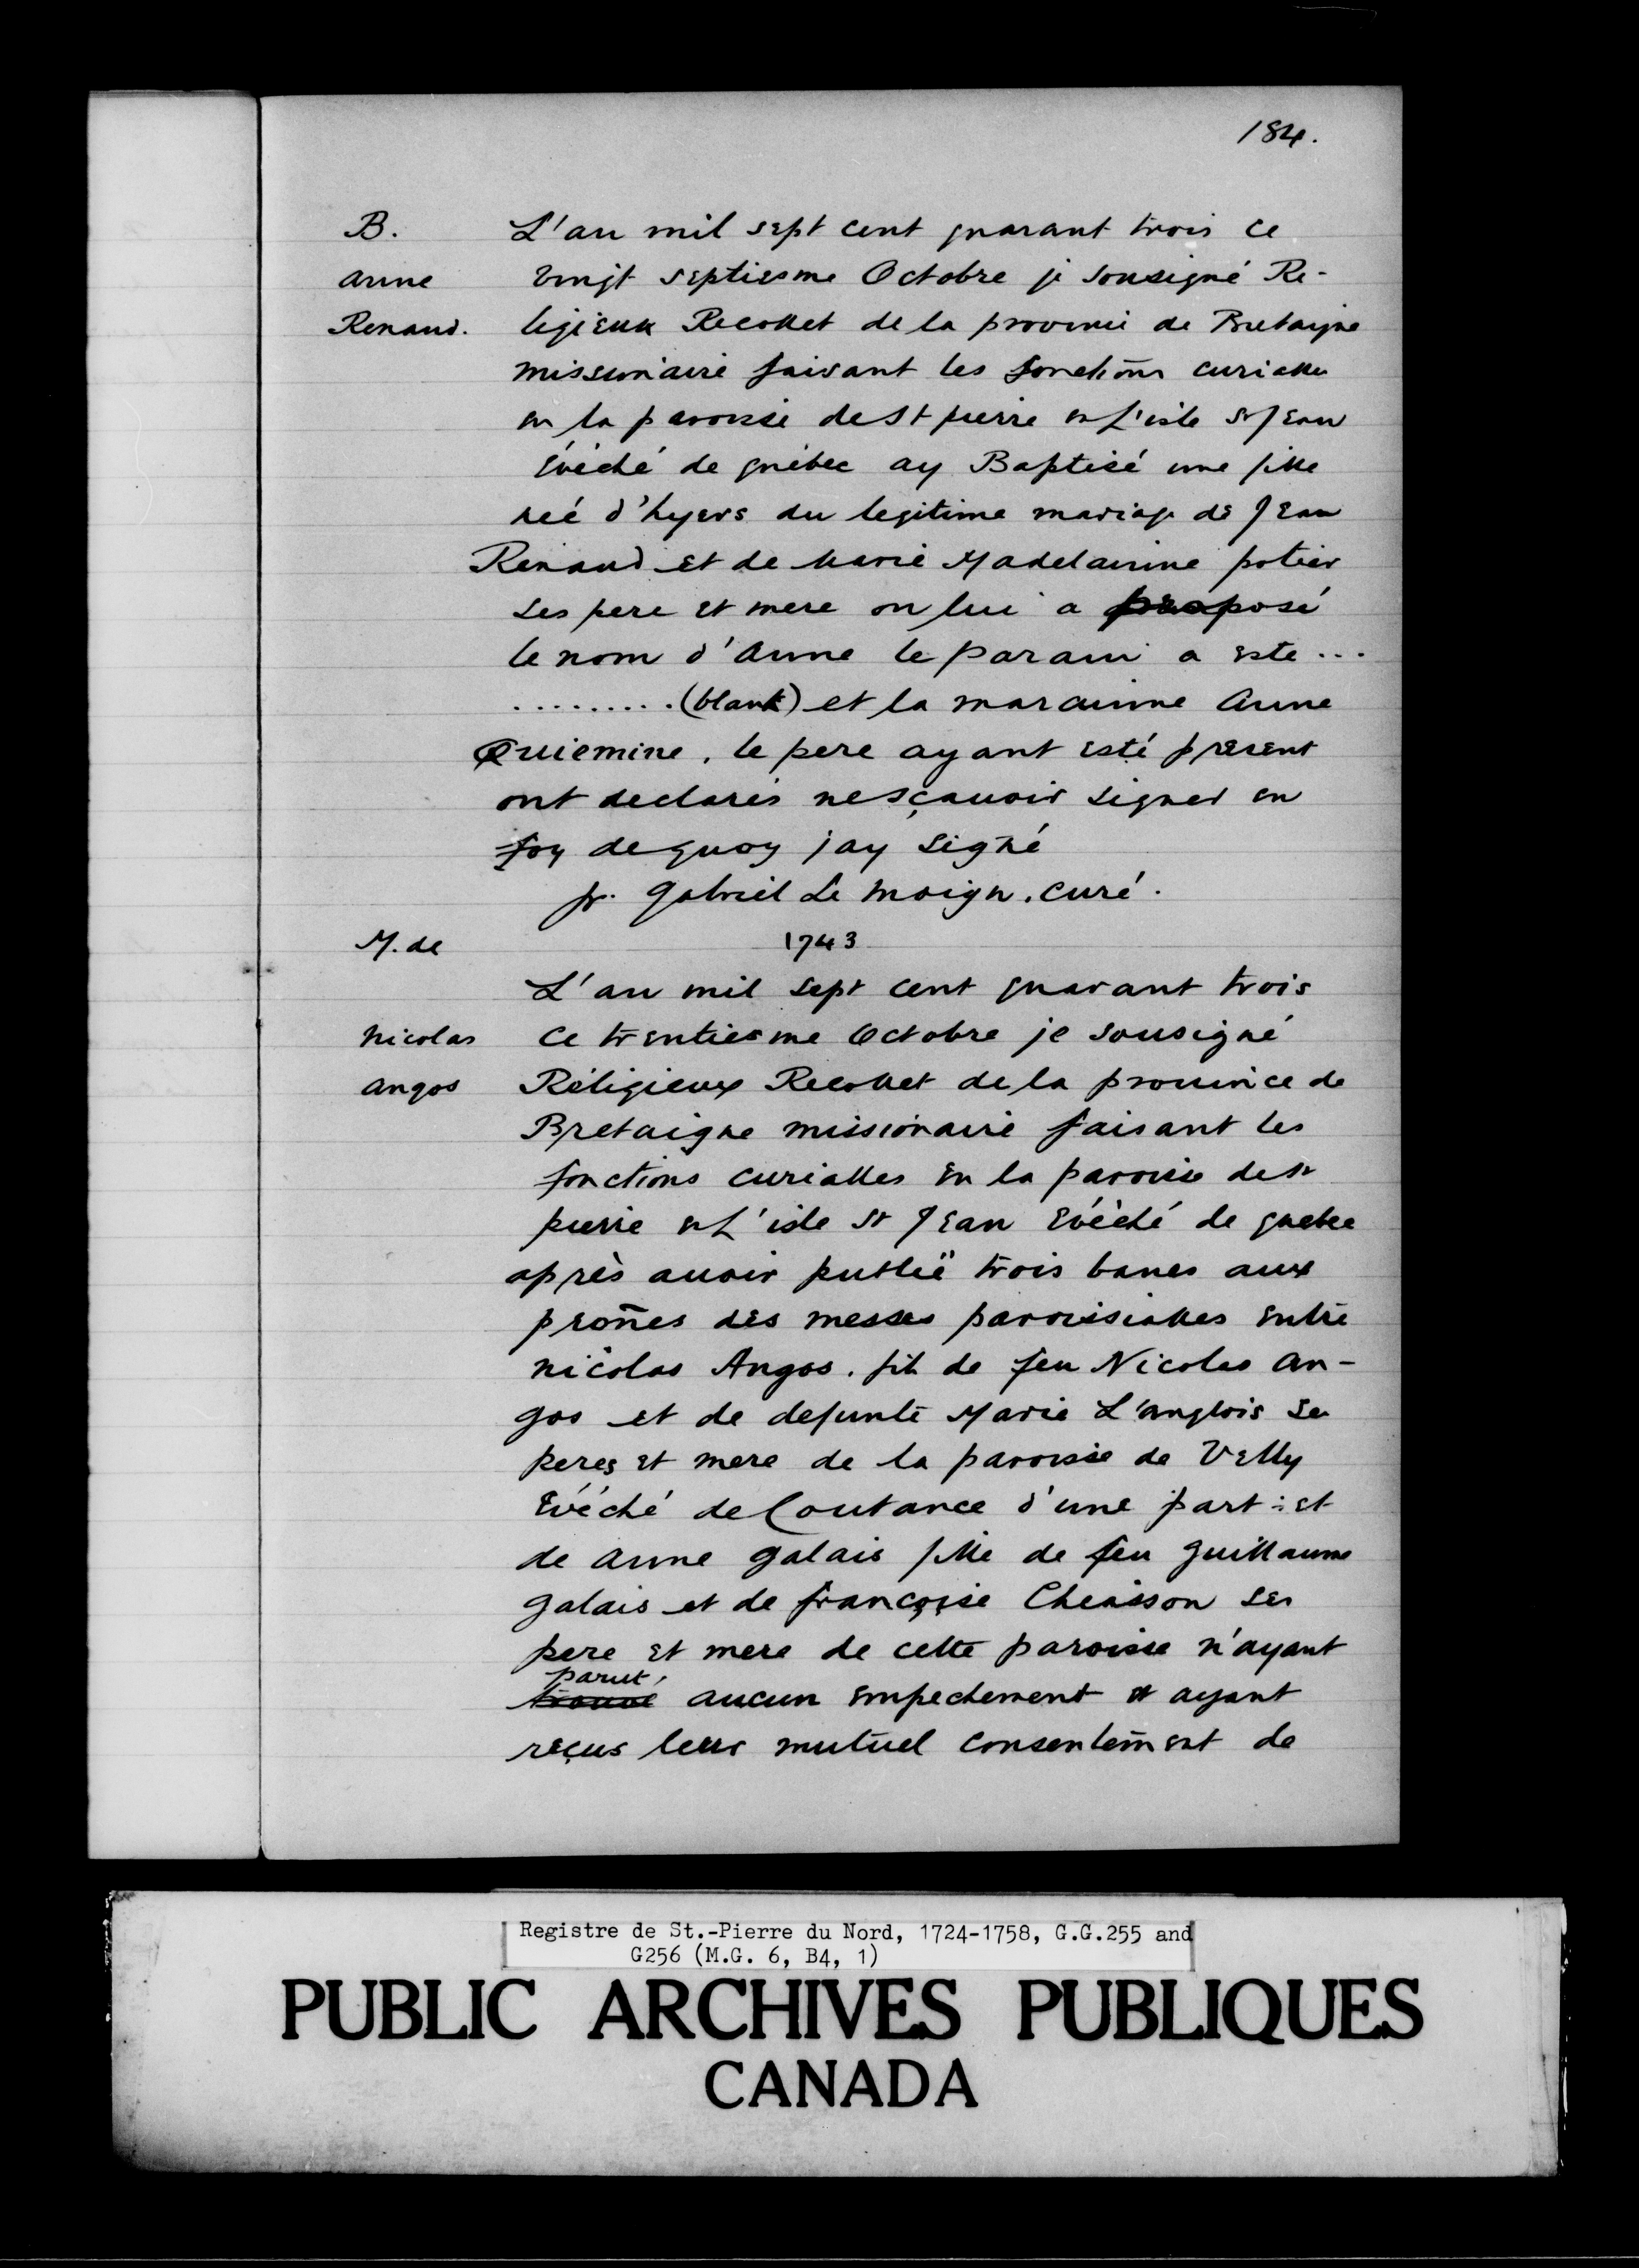 184.
B. L'an mil sept cent quarant trois ce
anne vingt septiesme Octobre je sousigné Re-
Renaud. ligieux Recollet de la province de Bretaigne
missionaire faisant les fonctions curialles
en la paroisse de St pierre en L'isle St Jean
Évéché de québec ay Baptisé une fille
neé d'hyers du legitime mariage de Jean
Renaud et de marie Madelainne potier
ses pere et mere on lui a posé
le nom d'anne le parain a este ...
......... (blank) et la marainne anne
Quiemine, le pere ayant esté present
ont declarés nesçauoir signer en
foy dequoy jay signé
fr. gabriel Le moign. curé.
M. de 1743
L'an mil sept cent quarant trois
nicolas ce trentiesme Octobre je sousigné
angos Réligieux Recollet de la prouince de
Bretaigne missionaire faisant les
fonctions curialles en la paroisse de st
pierre en L'isle St Jean Evéché de quebec
après auoir publié trois banes aux
prones des messes paroissialles entre
nicolas Angos. fils de feu Nicolas an-
gos et de defunte Marie L'anglois ses
peres et mere de la paroisse de Velly
Evéché de Coutance d'une part : et
de anne galais fille de feu guillaume
galais et de françoise Cheaisson ses
pere et mere de cette paroisse n'ayant
parut
trouvé aucun empechement et ayant
reçus leur mutuel consentement de
Registre de St.-Pierre du Nord, 1724-1758, G.G.255 and
G256 (M.G. 6, B4, 1)
PUBLIC ARCHIVES PUBLIQUES
CANADA